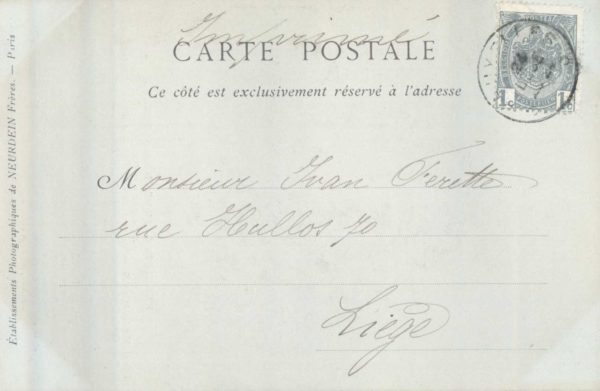 Imprimé
CARTE POSTALE
Ce côté est exclusivement réservé à l'adresse
Monsieur Ivan Ferette
rue Hullos 70
Liège
Établissements Photographiques de NEURDEIN Frères. — Paris
1c 1c